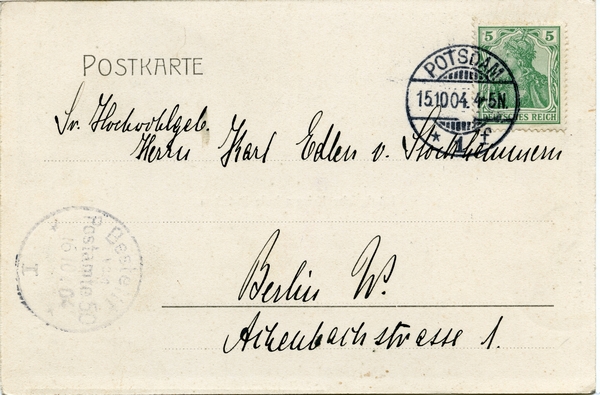 POSTKARTE
5 5
DEUTSCHES REICH
POTSDAM
15.10.04. 4-5N.
* 1 f
Sr. Hochwohlgeb.
Herrn Karl Edlen v. Stockhammern
Berlin W.
Achenbachstrasse 1.
Bestellt
Postamte 50
I.